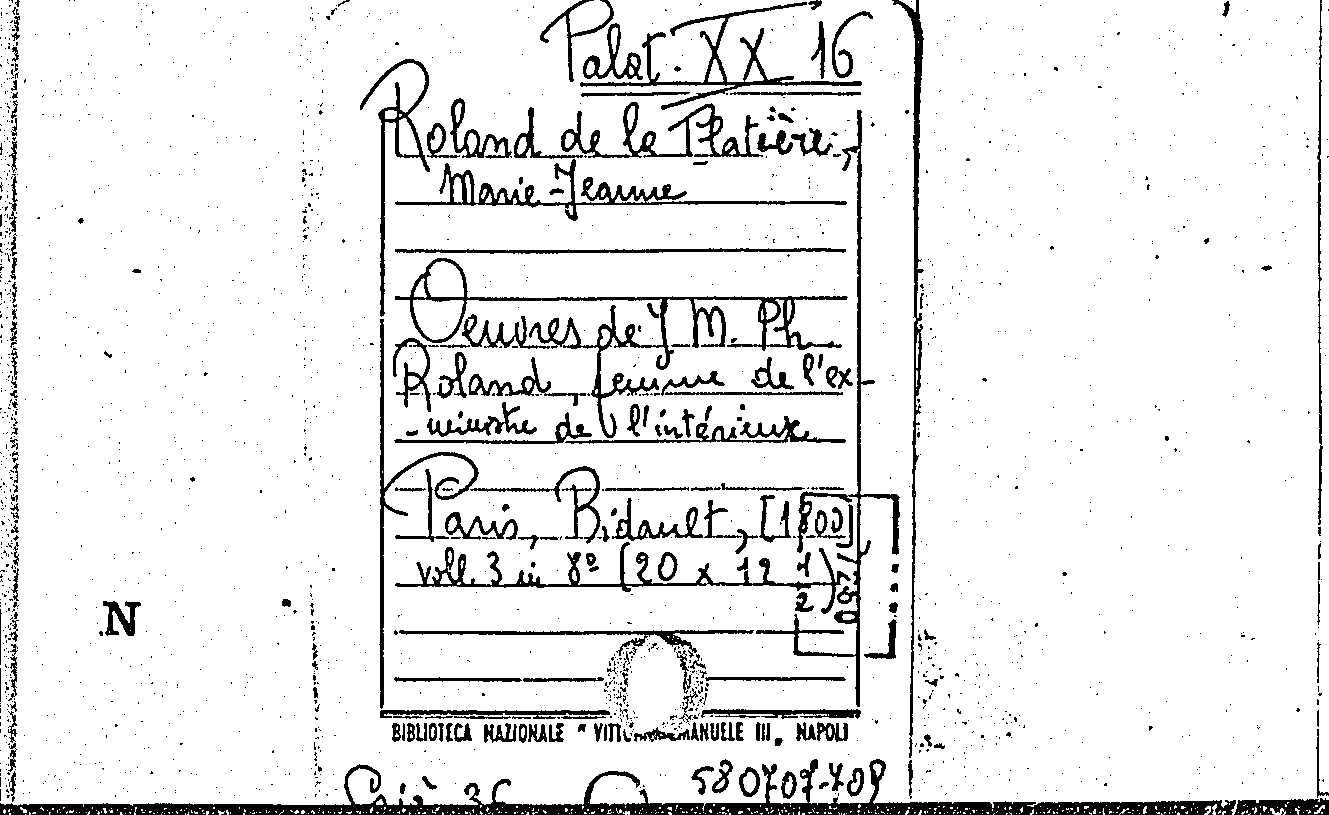 Palat. XX 16
Roland de la Platière,
Marie-Jeanne
Oeuvres de J. M. Ph.
Roland, femme de l'ex-
-ministre de l'intérieux.
Paris, Bidault, [1800]
voll. 3 in 8º (20 x 12 1/2)
N
BIBLIOTECA NAZIONALE "VITT EMANUELE III„ NAPOLI
580707-709